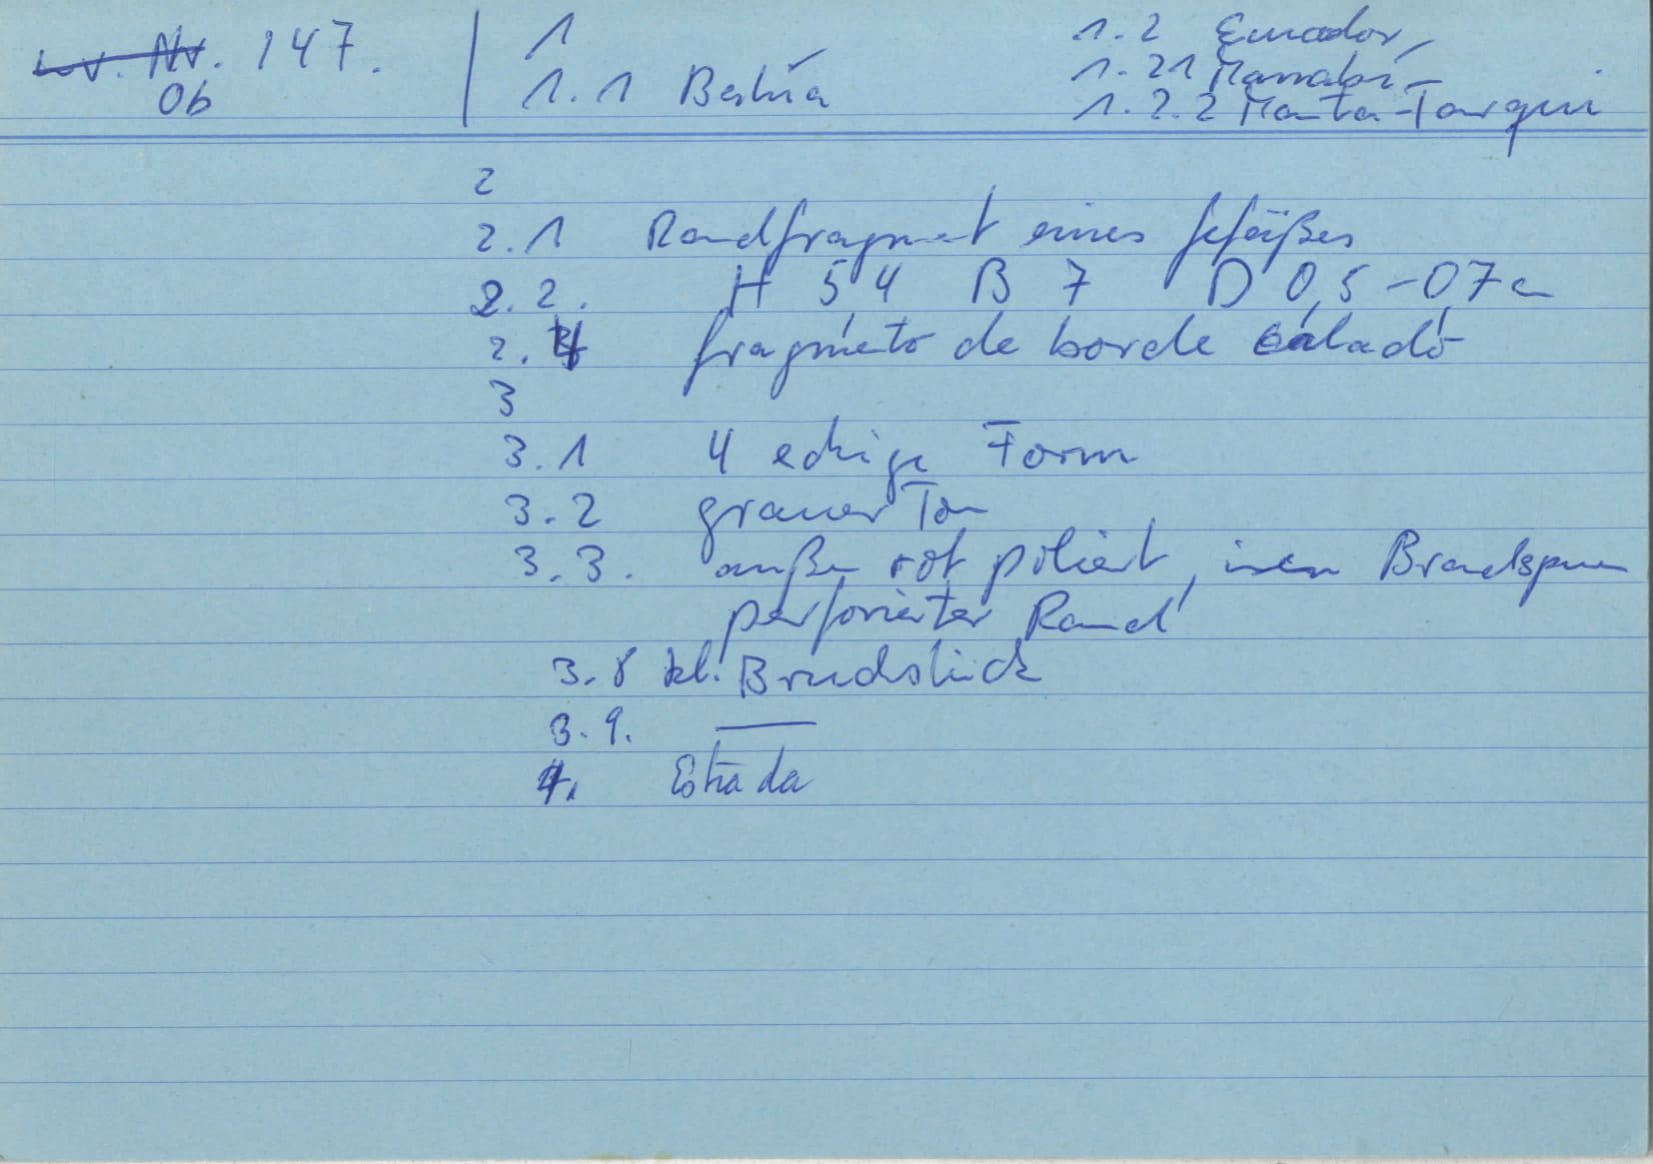 Inv. Nr. 147.
Ob
1
1.1 Bahía
1.2 Ecuador,
1.21 Manabí-
1.2.2 Manta-Tarqui
2
2.1 Randfragment eines Gefäßes
2.2. H 5,4 B 7 D 0,5-0,7 c
2.4 fragmento de borde calado
3
3.1 4 eckige Form
3.2 grauer Ton
3.3. außen rot poliert, innen Brandspuren
perforierter Rand
3.8 kl. Bruchstück
3.9. —
4. Estrada